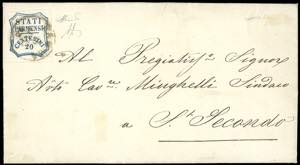 STATI
PARMENSI
CENTESIMI
20
Al Pregiatis.o Signor
Avv.to Cav.re Minghelli Sindaco
a S.t Secondo